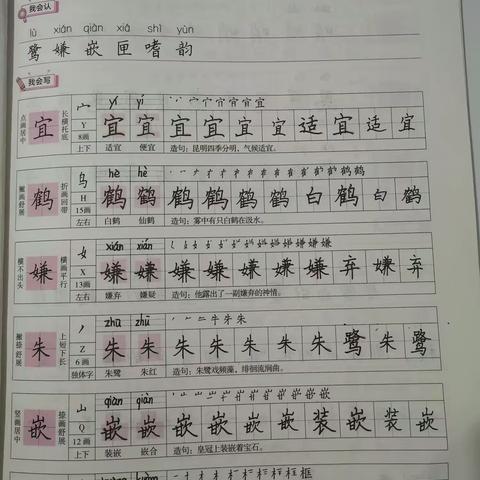 我会认
lù xián qiàn xiá shì yùn
鹭 嫌 嵌 匣 嗜 韵
我会写
点画居中 宜 长横托底 宀 Y 8画 上下
yí yí
宜 宜 宜 宜 宜 宜 适 宜 适 宜
适宜 便宜 造句：昆明四季分明，气候适宜。
撇画舒展 鹤 折画回带 鸟 H 15画 左右
hè hè
鹤 鹤 鹤 鹤 鹤 鹤 白 鹤 白 鹤
白鹤 仙鹤 造句：雾中有只白鹤在汲水。
横不出头 嫌 横画平行 女 X 13画 左右
xián xián
嫌 嫌 嫌 嫌 嫌 嫌 弃 嫌 弃
嫌弃 嫌疑 造句：他露出了一副嫌弃的神情。
撇捺舒展 朱 上短下长 丿 Z 6画 独体字
zhū zhū
朱 朱 朱 朱 朱 朱 朱 鹭 朱 鹭
朱鹭 朱红 造句：朱鹭戏频藻，徘徊流涧曲。
竖画居中 嵌 捺画舒展 山 Q 12画 上下
qiàn qiàn
嵌 嵌 嵌 嵌 嵌 嵌 装 嵌 装 嵌
装嵌 嵌合 造句：皇冠上装嵌着宝石。